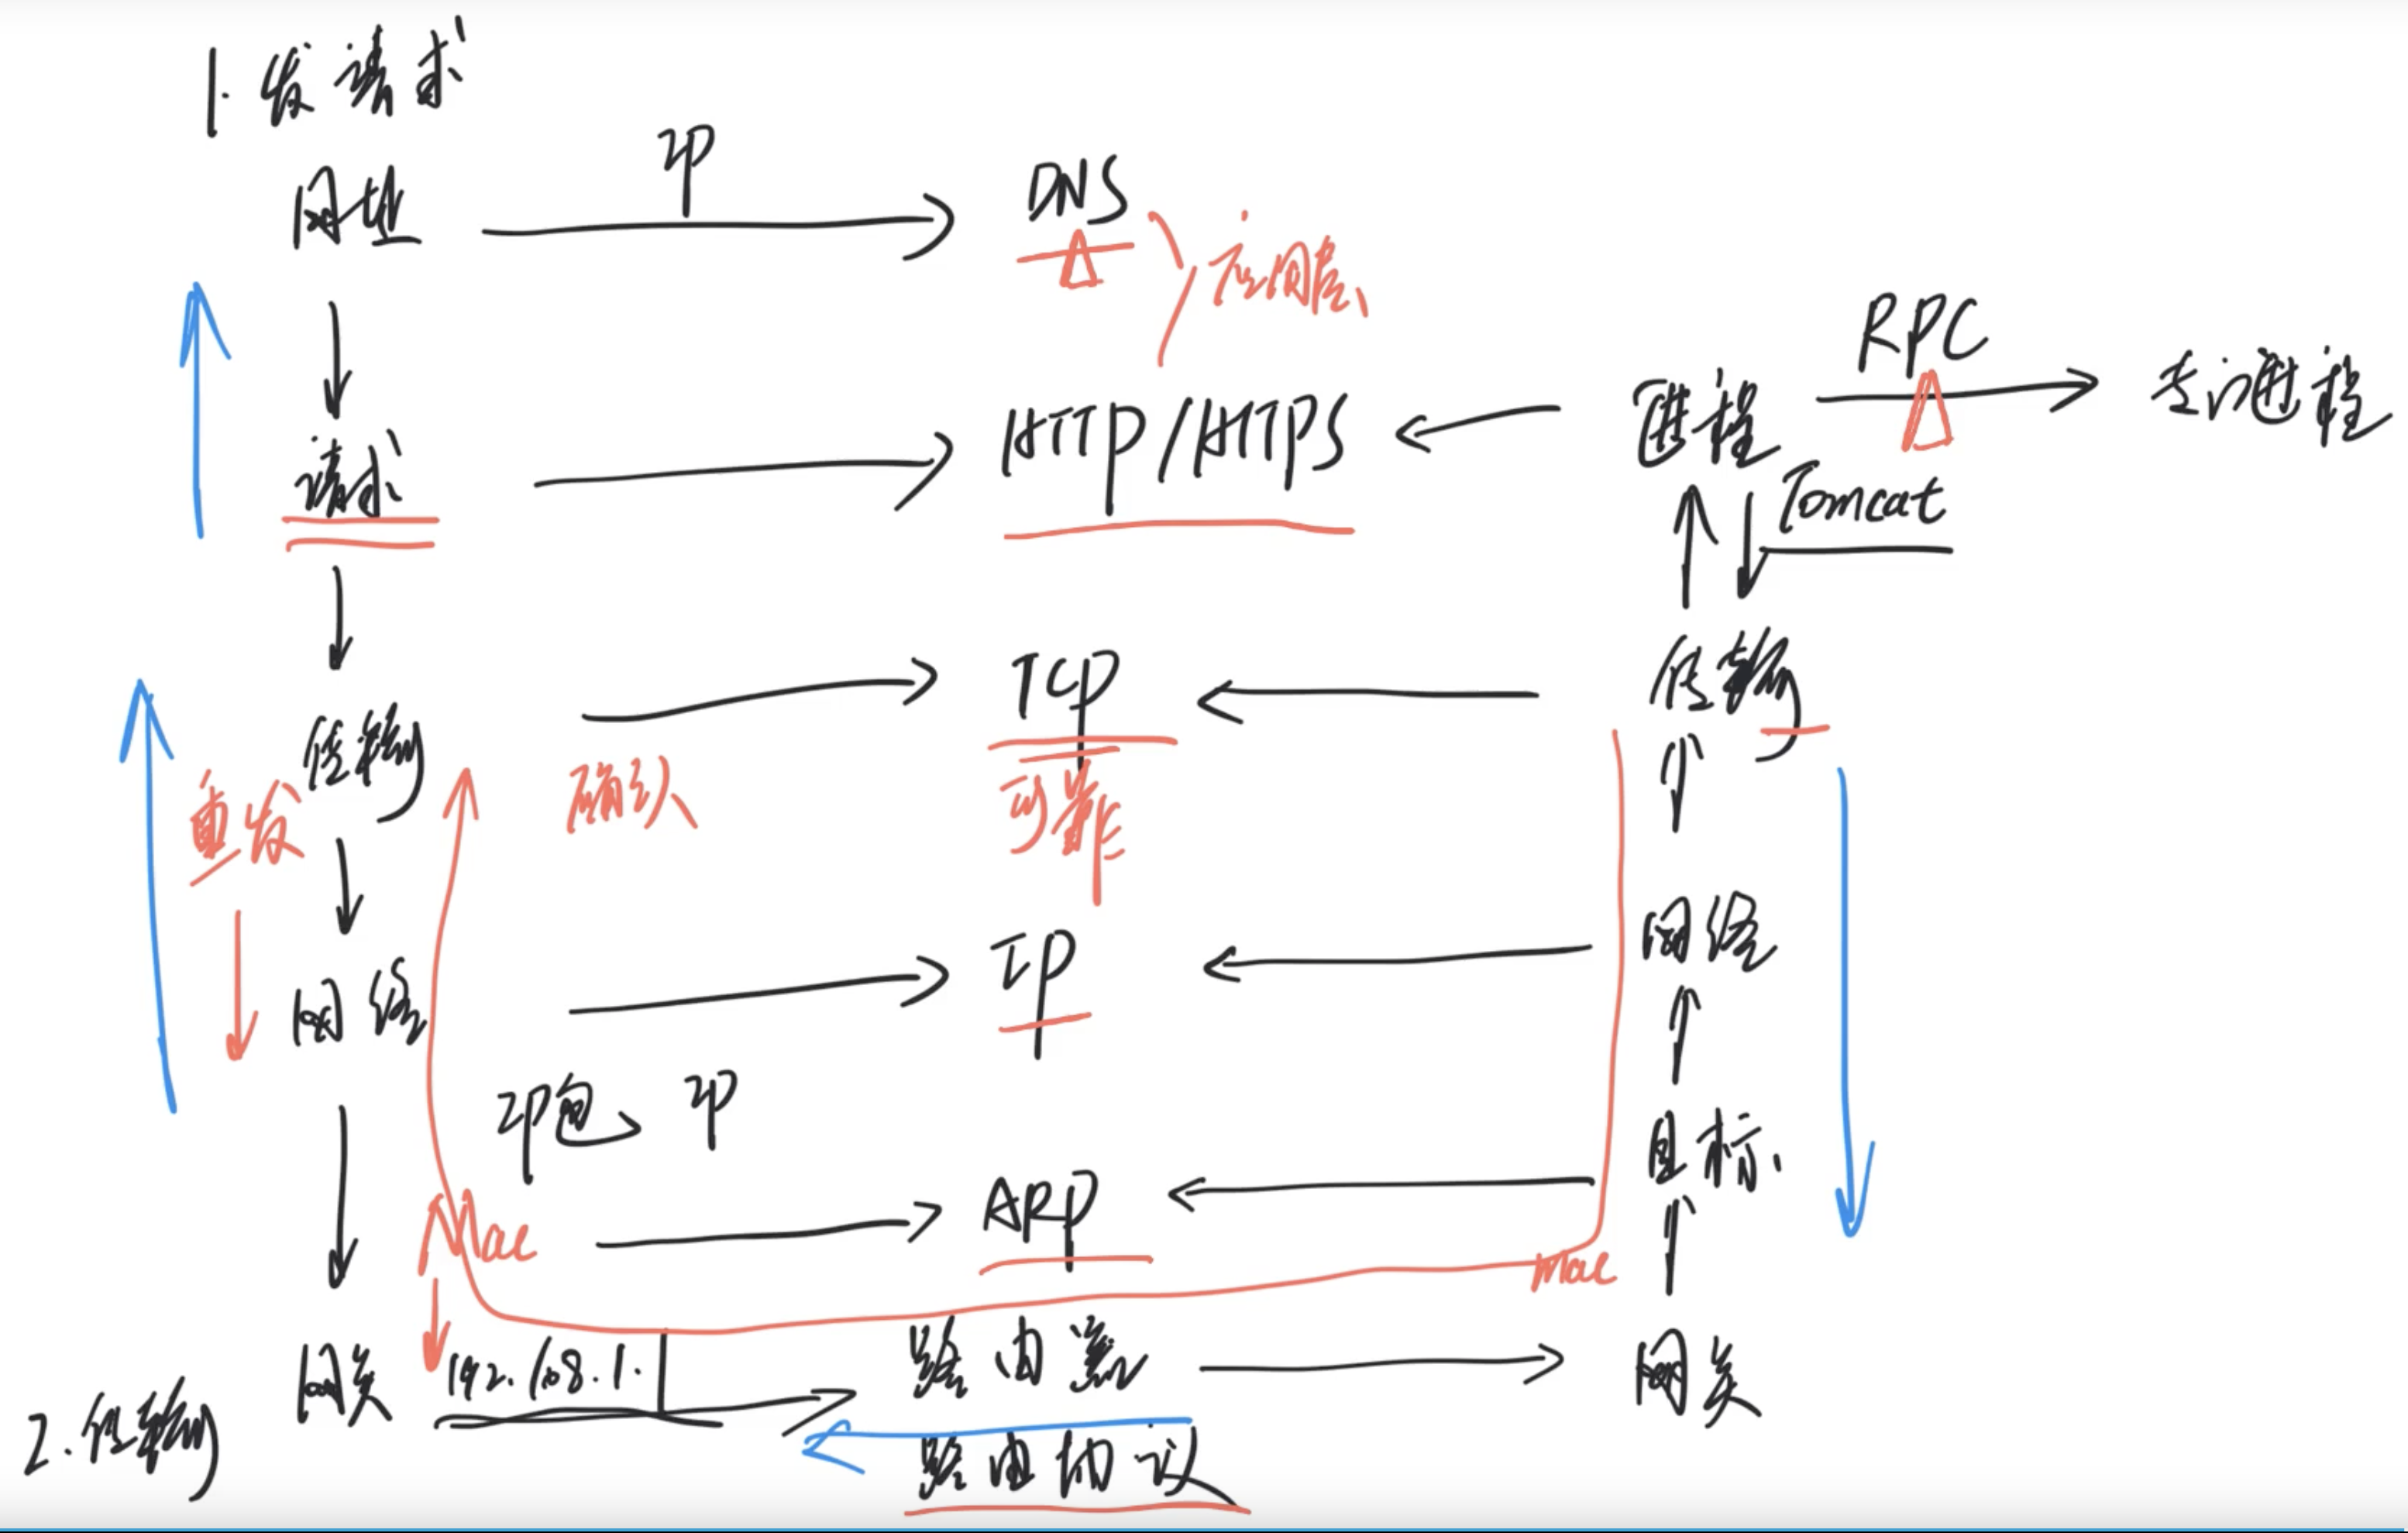 1. 发请求
网址
IP
DNS
应用层
请求
HTTP/HTTPS
进程
RPC
专门进程
Tomcat
传输
重发
确认
TCP
可靠
传输
网络
IP
网络
IP包、IP
Mac
ARP
目标
Mac
网关
192.168.1.1
路由器
网关
2. 传输
路由协议